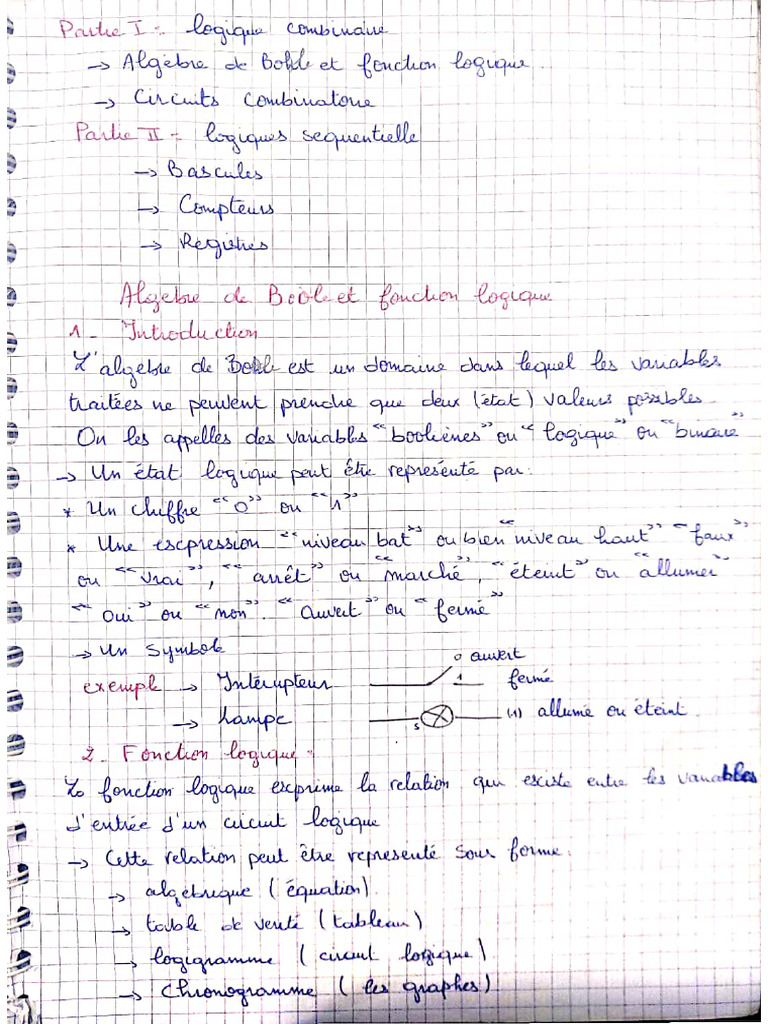 Partie I : logique combinaire
→ Algèbre de Boole et fonction logique.
→ Circuits combinatoire
Partie II : logiques sequentielle
→ Bascules
→ Compteurs
→ Registres
Algèbre de Boole et fonction logique
1 - Introduction
L'algèbre de Boole est un domaine dans lequel les variables
traitées ne peuvent prendre que deux (état) valeurs possibles
On les appelles des variables "booliènes" ou "logique" ou "binaire"
→ Un état logique peut être représenté par :
* Un chiffre "0" ou "1"
* Une expression "niveau bat" ou bien "niveau haut" "faux"
ou "vrai", "arrêt" ou "marché", "éteint" ou "allumer"
"oui" ou "non". "Ouvert" ou "fermé"
→ Un symbole
exemple → Intérupteur 0 ouvert
1 fermé
→ Lampe S (1) allumé ou éteint.
2 - Fonction logique :
La fonction logique exprime la relation qui existe entre les variables
d'entrée d'un circuit logique
→ Cette relation peut être representé sous forme :
→ algébrique (équation).
→ table de verité (tableau)
→ logigramme (circuit logique)
→ Chronogramme (les graphes)